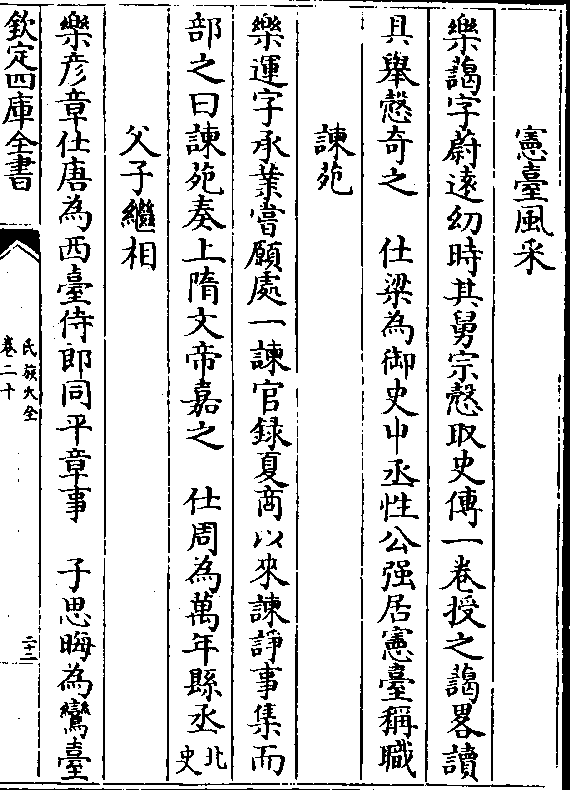 憲臺風采
樂藹字蔚逺幼時其舅宗慤取史傳一卷授之藹畧讀
具舉慤奇之　仕梁為御史中丞性公强居憲臺稱職
諫苑
樂運字承業嘗願處一諫官録夏商以來諫諍事集而
部之曰諫苑奏上隋文帝嘉之　仕周為萬年縣丞北史
父子繼相
樂彦章仕唐為西臺侍郎同平章事　子思晦為鸞臺
欽定四庫全書
氏族大全
卷二十
二十二